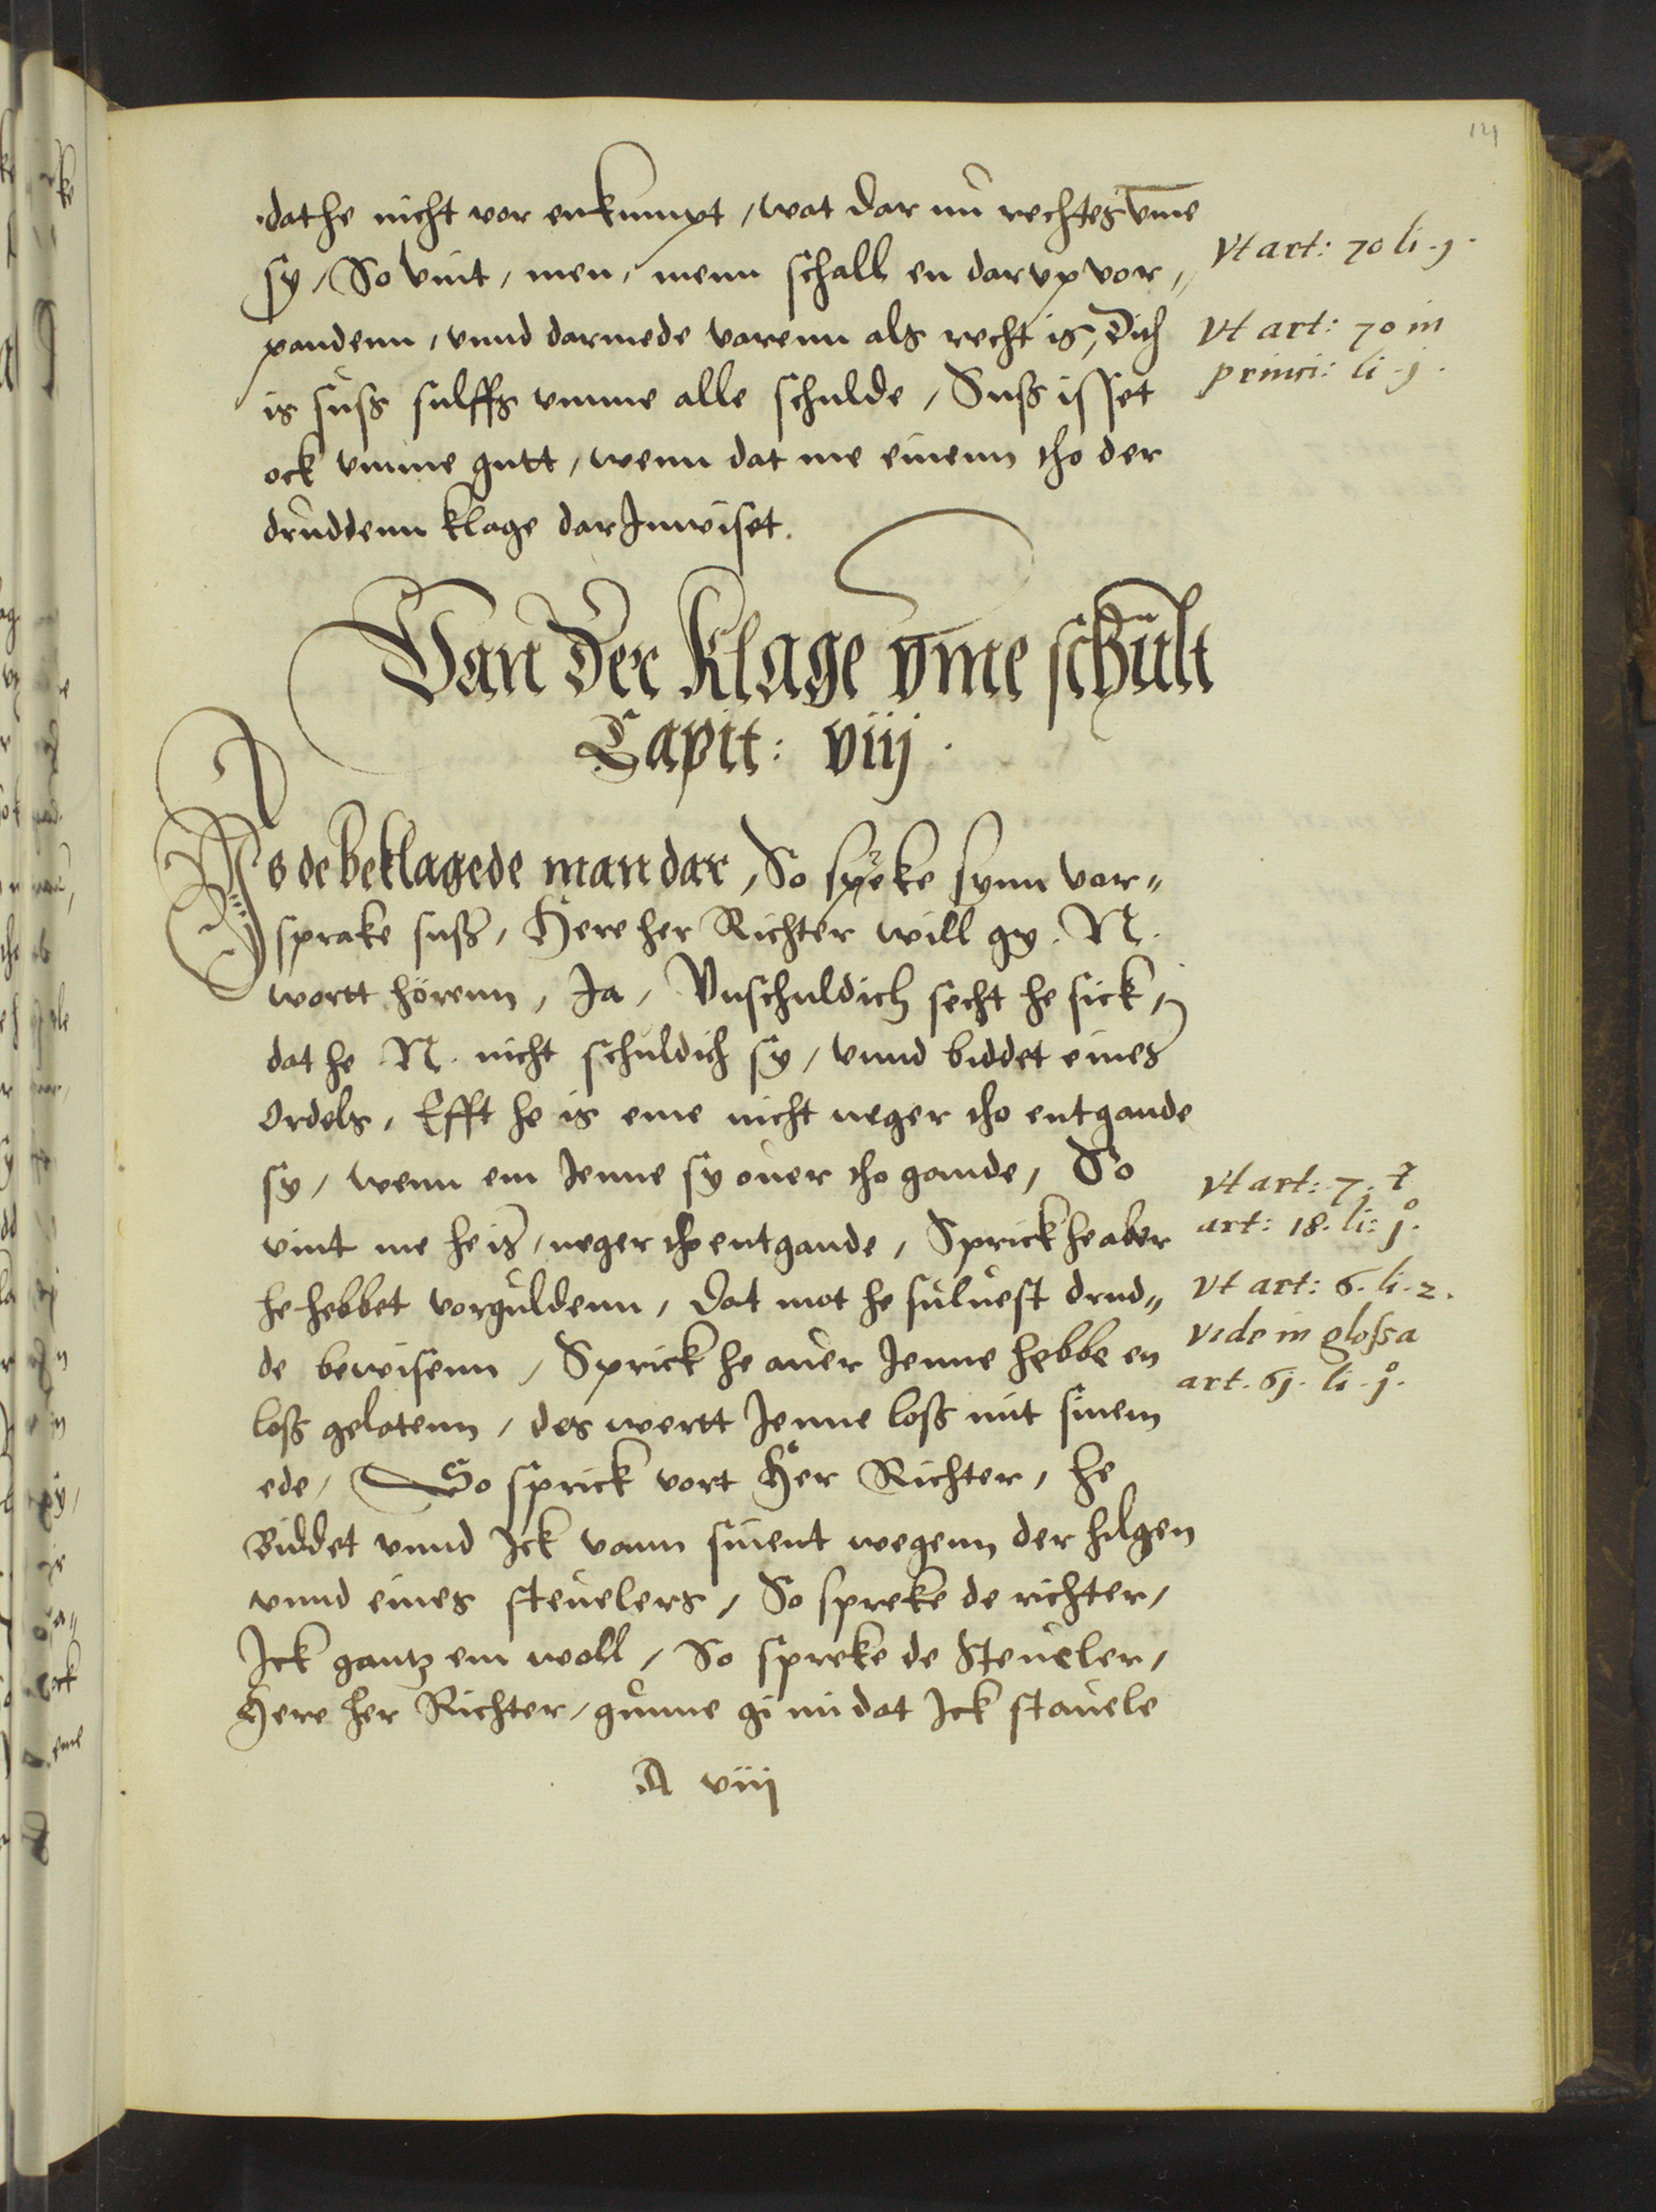 121
dathe nicht vor enkumpt, wat dar nů rechtes vme
sy, So vint, men, menn schall en darvp vor,,
pandenn, vnnd darmede varenn als recht is, Dith
is sůss sulffs vmme alle schulde, Suss isset
ock vmme gutt, wenn dat me einenn tho der
drůddenn klage darInwiset.
Vt art: 70 li. j.
Vt art: 70 in
princi: li. j.
Van Der Klage vme schůlt
Capit: viij.
Is de beklagede man dar, So spreke synn vor,,
sprake suss, Here her Richter will gy. N.
wortt hörenn, Ja, Vnschuldich secht he sick,
dat he N. nicht schuldich sy, vnnd biddet eines
Ordels, Efft he is eme nicht neger tho entgande
sy, wenn em Jenne sy ouer tho gande, So
vint me he is, neger tho entgande, Sprickt he aber
he hebbet vorgůldenn, Dat mot he sůluest drud,,
de bewisenn, Sprickt he auer Jenne hebbe en
loss gelatenn, des wertt Jenne loss mit sinem
ede, So sprick vort Her Richter, he
Biddet vnnd Ick vann sinent wegenn der hilgen
vnnd eines steuelers, So spreke de richter,
Ick gantz em woll, So spreke de Steueler,
Here her Richter, gůnne gi mi dat Ick stauele
Vt art: 7. &
art: 18. li: jº.
Vt art: 6. li. 2.
Vide in glossa
art. 6j. li. jº.
A viij